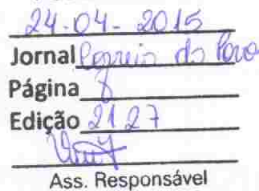 24-04-2015
Jornal Correio do Povo
Página 8
Edição 2127
Ass. Responsável